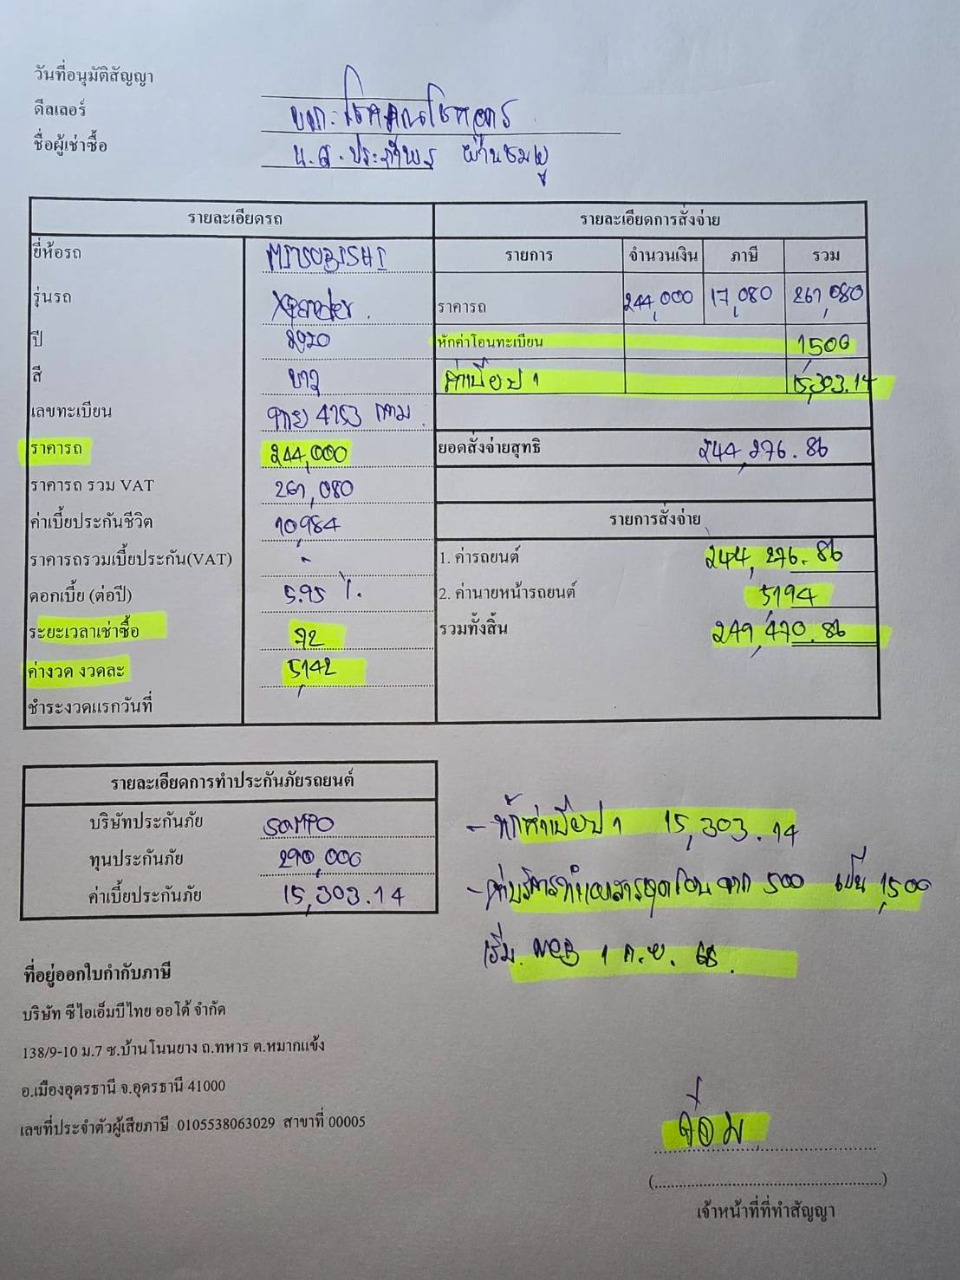 วันที่อนุมัติสัญญา
ดีลเลอร์ บจก. โชคคูณโชคอุดร
ชื่อผู้เช่าซื้อ น.ส. ประภาพร
รายละเอียดรถ
ยี่ห้อรถ MITSUBISHI
รุ่นรถ Xpander.
ปี 2020
สี ขาว
เลขทะเบียน 4753 กทม.
ราคารถ 244,000
ราคารถ รวม VAT 261,080
ค่าเบี้ยประกันชีวิต 10,984
ราคารถรวมเบี้ยประกัน(VAT) -
ดอกเบี้ย (ต่อปี) 5.95 %.
ระยะเวลาเช่าซื้อ 72
ค่างวด งวดละ 5,142
ชำระงวดแรกวันที่
รายละเอียดการสั่งจ่าย
รายการ จำนวนเงิน ภาษี รวม
ราคารถ 244,000 17,080 261,080
หักค่าโอนทะเบียน 1500
ค่าเบี้ยป 1 15,303.14
ยอดสั่งจ่ายสุทธิ 244,276.86
รายการสั่งจ่าย
1. ค่ารถยนต์ 244,276.86
2. ค่านายหน้ารถยนต์ 5194
รวมทั้งสิ้น 249,470.86
รายละเอียดการทำประกันภัยรถยนต์
บริษัทประกันภัย SOMPO
ทุนประกันภัย 290,000
ค่าเบี้ยประกันภัย 15,303.14
- หักค่าเบี้ยป 1 15,303.14
- ค่าบริการทำเอกสารชุดโอน จาก 500 เป็น 1,500
เริ่ม 1 ก.ย. 68.
ที่อยู่ออกใบกำกับภาษี
บริษัท ซีไอเอ็มบีไทย ออโต้ จำกัด
138/9-10 ม.7 ซ.บ้านโนนยาง ถ.ทหาร ต.หมากแข้ง
อ.เมืองอุดรธานี จ.อุดรธานี 41000
เลขที่ประจำตัวผู้เสียภาษี 0105538063029 สาขาที่ 00005
จ๋อม
(..................................................)
เจ้าหน้าที่ที่ทำสัญญา